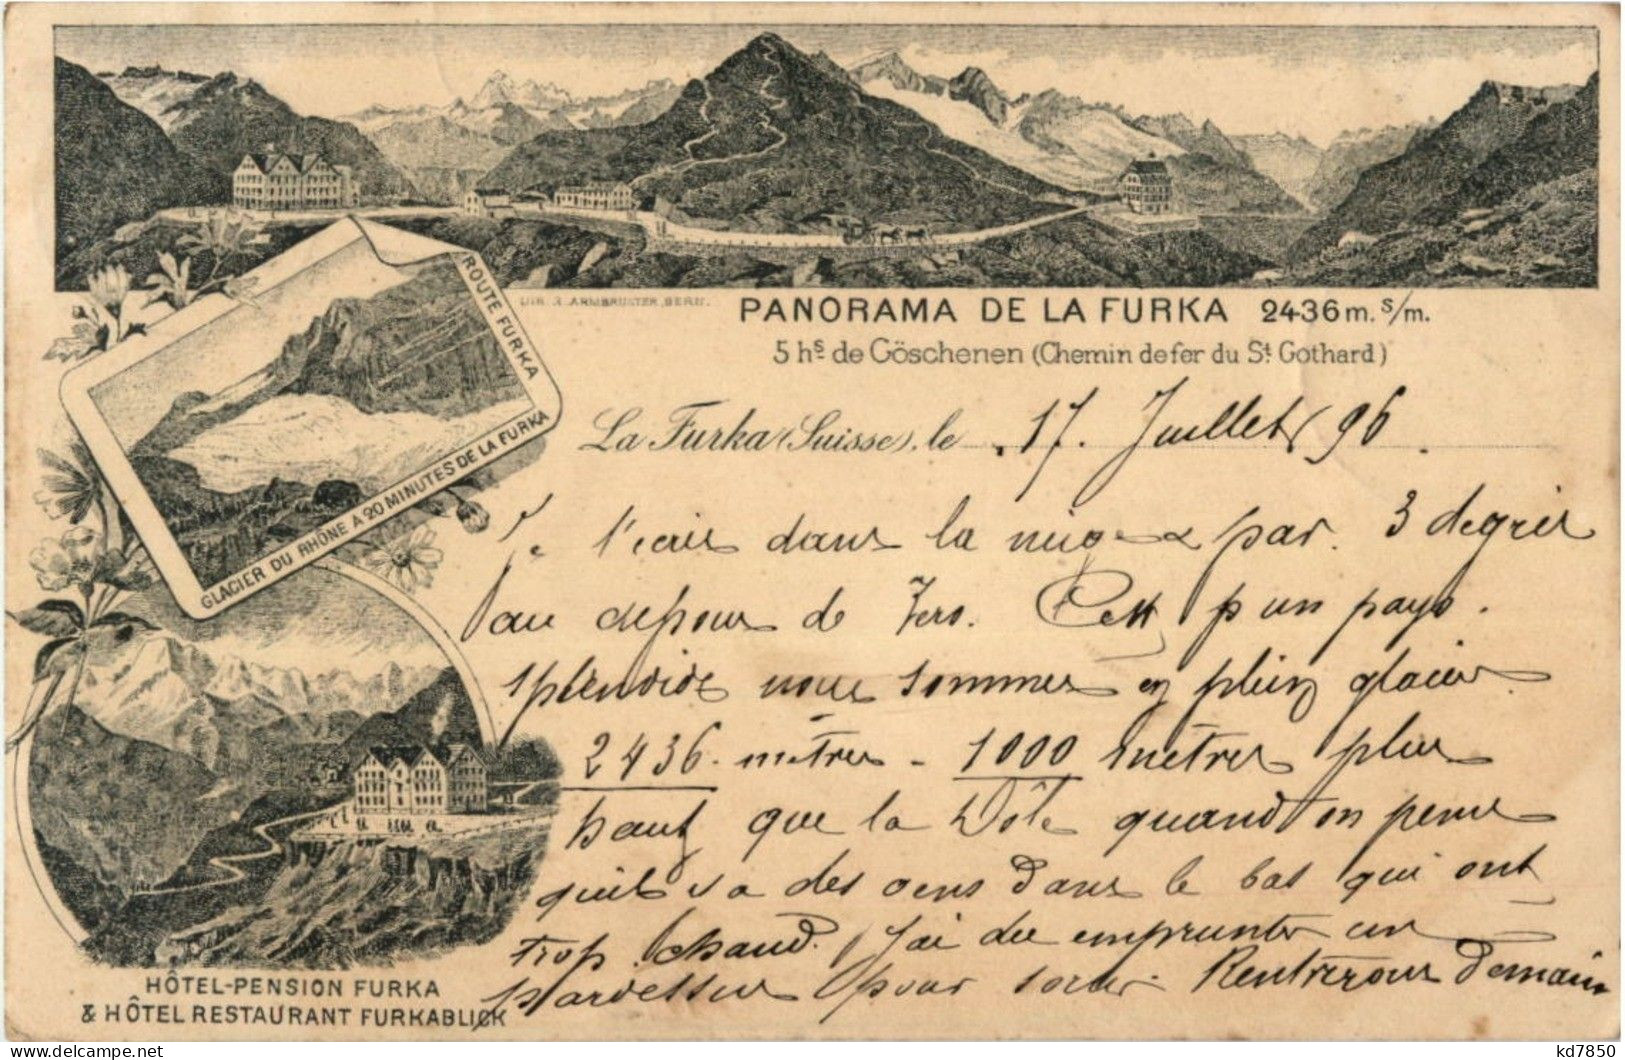 LITH. R. ARMBRUSTER, BERN.
PANORAMA DE LA FURKA 2436 m. s/m.
5 hs de Göschenen (Chemin de fer du St Gothard)
ROUTE FURKA
GLACIER DU RHÔNE A 20 MINUTES DE LA FURKA
La Furka (Suisse), le 17. Juillet 96
Je dans la neige par 3 degrés
au de Zero. un pays
splendide nous sommes en plein glacier
2436 mètres - 1000 mètres plus
haut que la Dôle quand on pense
qu'il y a des gens dans le bas qui ont
trop chaud. J'ai du emprunter un
pardessus pour Rentrerons demain
HÔTEL-PENSION FURKA
& HÔTEL RESTAURANT FURKABLICK
delcampe.net
kd7850